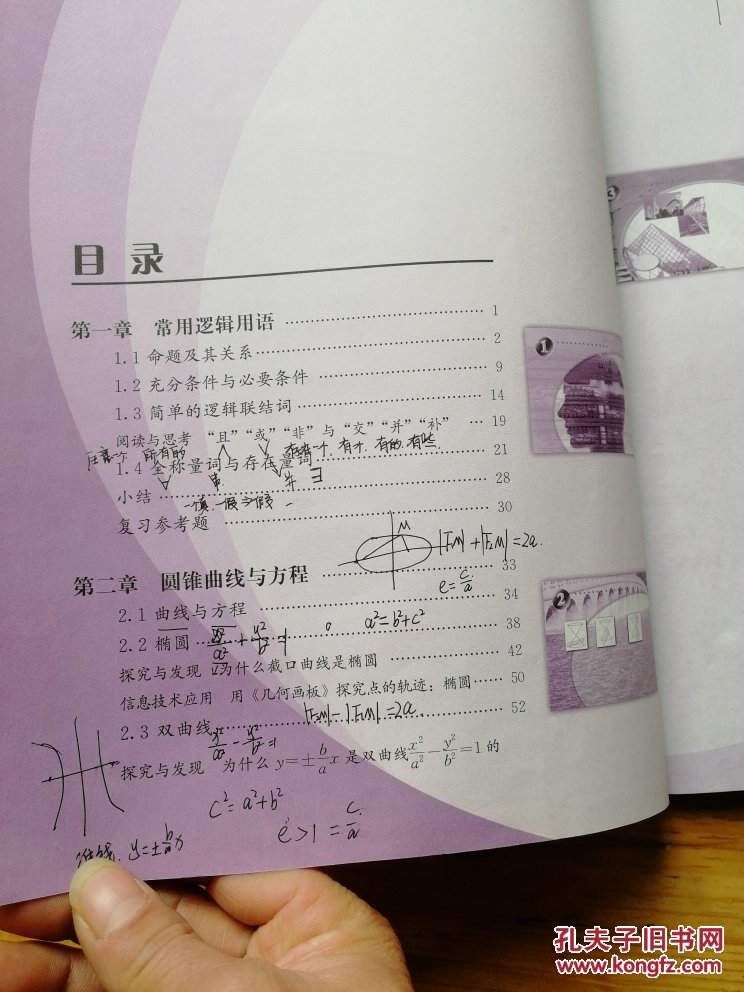 目录
第一章 常用逻辑用语 …… 1
1.1 命题及其关系 …… 2
1.2 充分条件与必要条件 …… 9
1.3 简单的逻辑联结词 …… 14
阅读与思考 “且”“或”“非”与“交”“并”“补” … 19
所有的 有个 有的 有些
1.4 全称量词与存在量词 …… 21
∃
小结 …… 28
复习参考题 …… 30
M
|F₁M|+|F₂M|=2a.
第二章 圆锥曲线与方程 …… 33
e=c/a
2.1 曲线与方程 …… 34
a²=b²+c²
2.2 椭圆 …… 38
x²/a²+y²/b²=1
探究与发现 为什么截口曲线是椭圆 …… 42
信息技术应用 用《几何画板》探究点的轨迹：椭圆 …… 50
|F₂M|-|F₁M|=2a
2.3 双曲线 …… 52
x²/a²-y²/b²=1
探究与发现 为什么 y=±b/a x 是双曲线 x²/a²-y²/b²=1 的
c²=a²+b²
e>1=c/a
y=±b/a x
1
2
3
孔夫子旧书网
www.kongfz.com